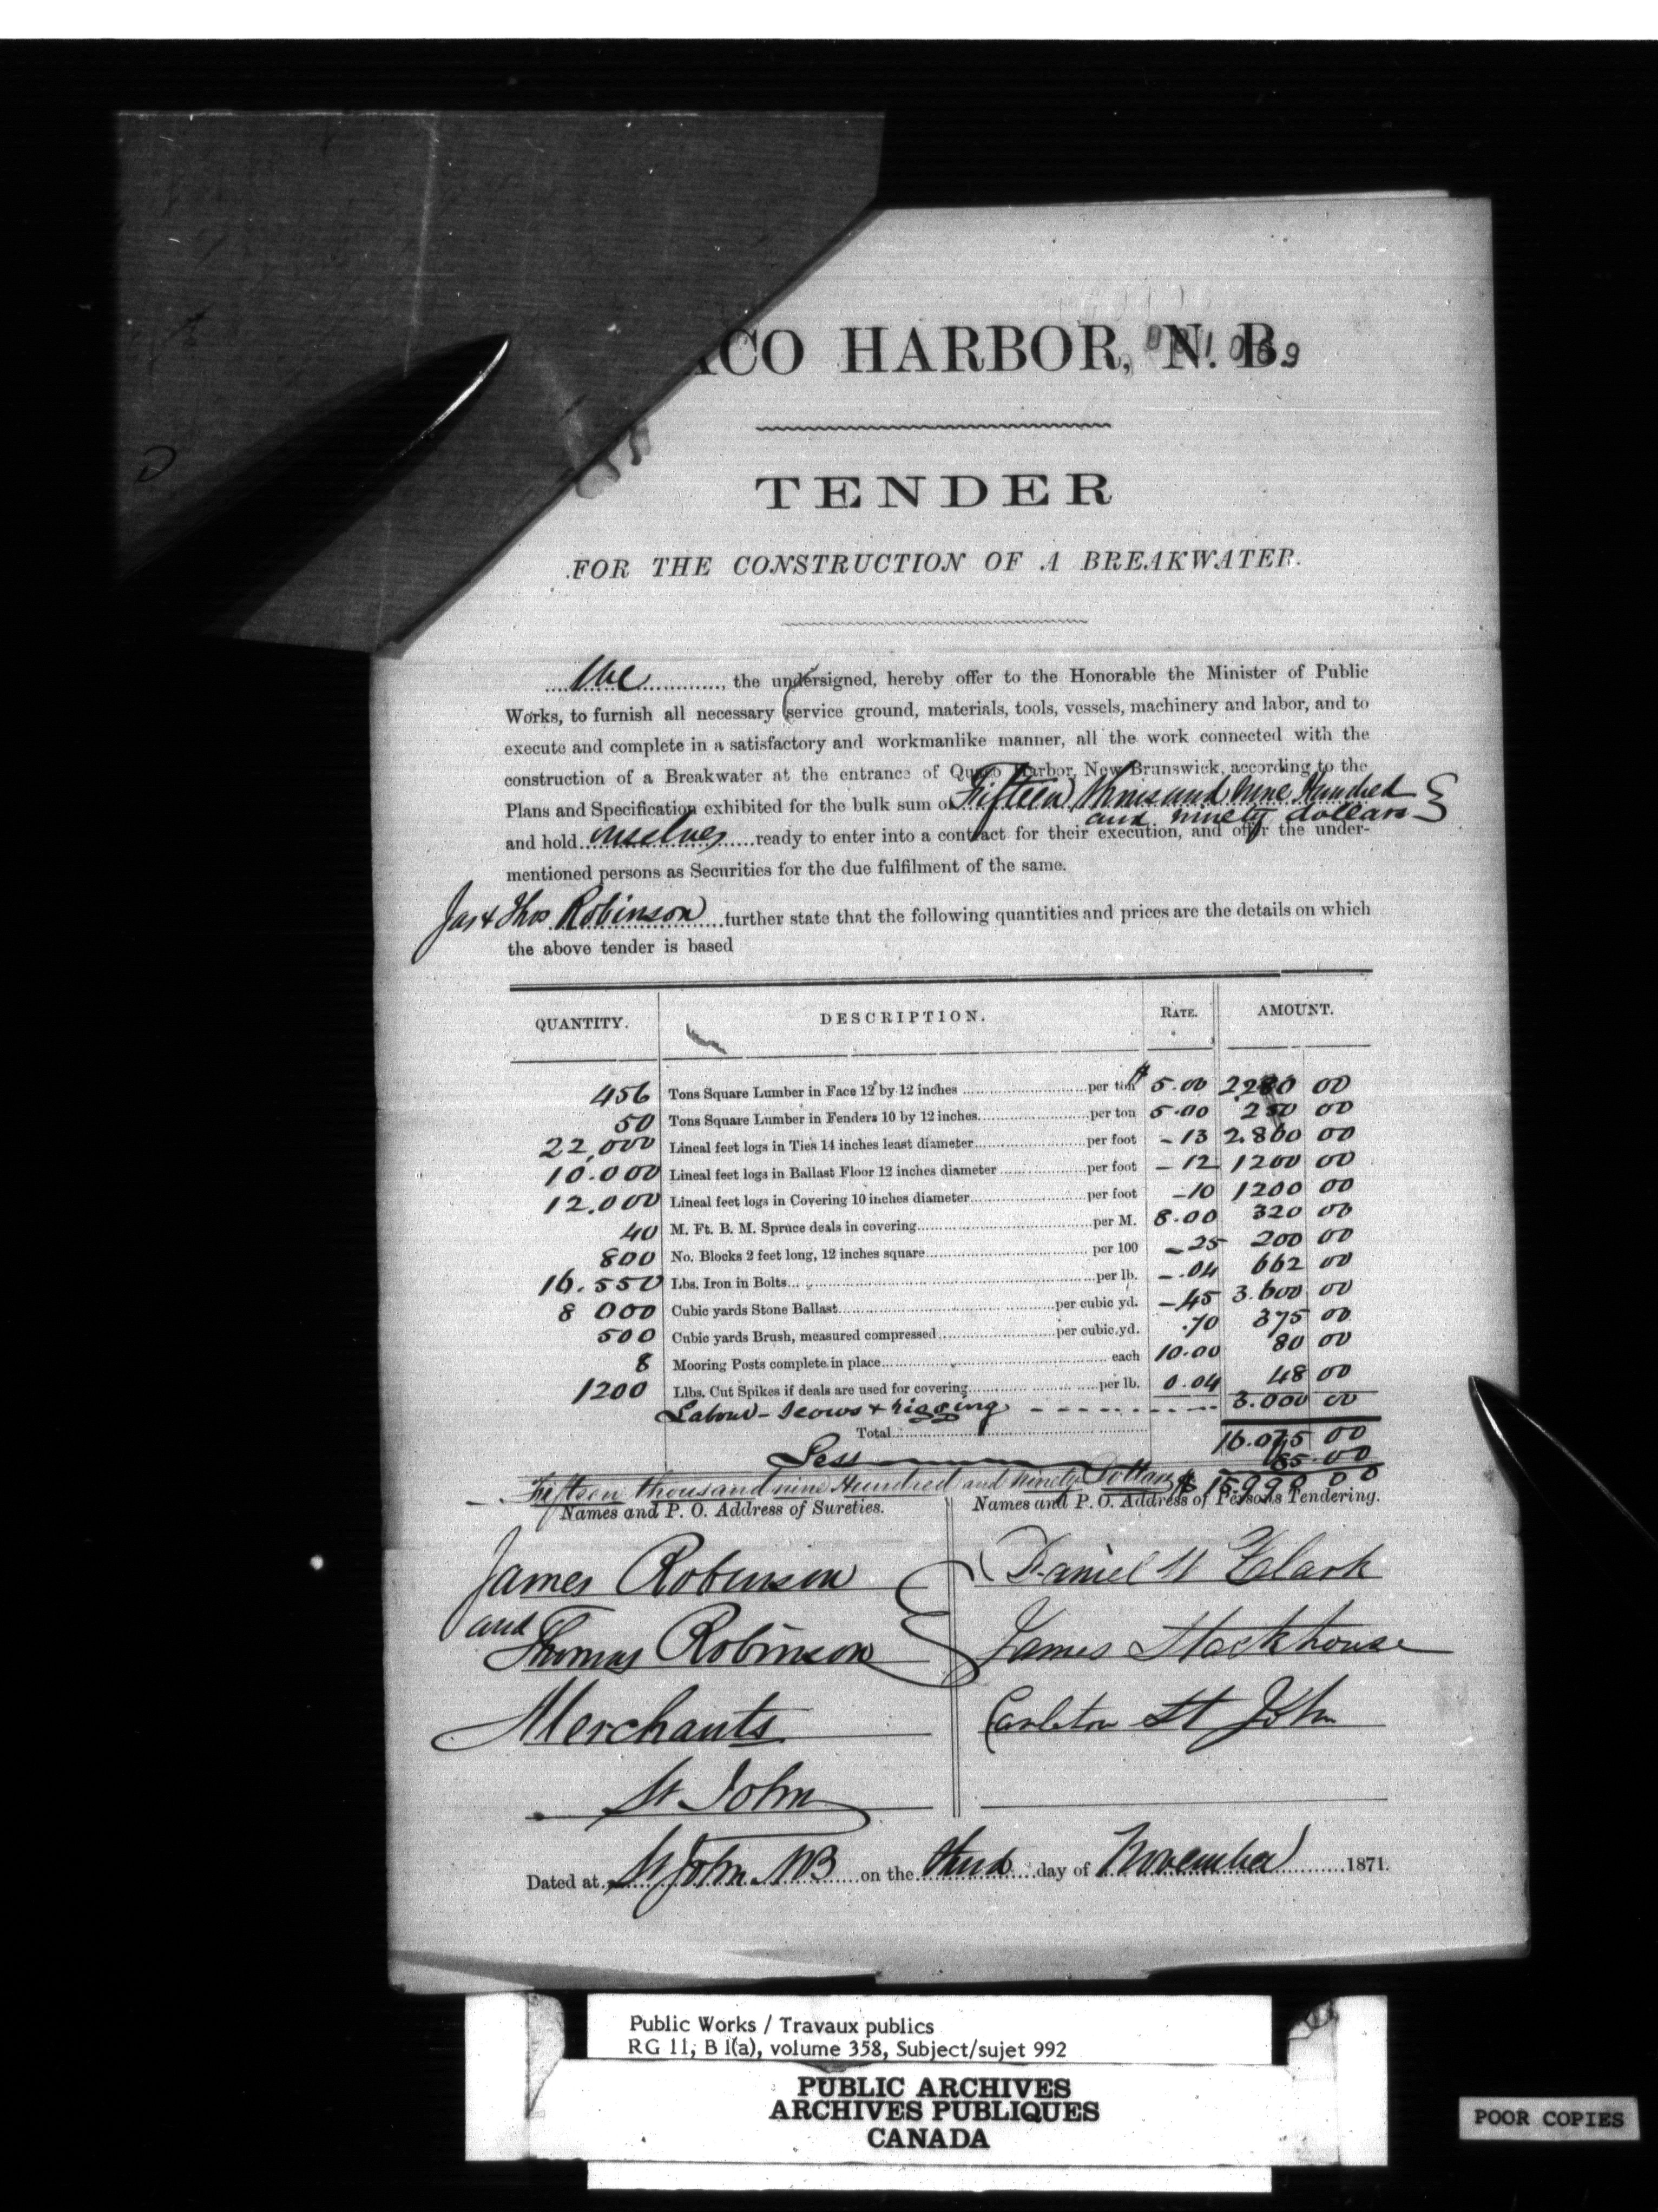 ACO HARBOR, N. B.
TENDER
FOR THE CONSTRUCTION OF A BREAKWATER.
We, the undersigned, hereby offer to the Honorable the Minister of Public
Works, to furnish all necessary service ground, materials, tools, vessels, machinery and labor, and to
execute and complete in a satisfactory and workmanlike manner, all the work connected with the
construction of a Breakwater at the entrance of Quaco Harbor, New Brunswick, according to the
Plans and Specification exhibited for the bulk sum of Fifteen Thousand Nine Hundred
and ninety dollars
and hold ourselves ready to enter into a contract for their execution, and offer the under-
mentioned persons as Securities for the due fulfilment of the same.
Jas & Thos Robinson further state that the following quantities and prices are the details on which
the above tender is based
QUANTITY. DESCRIPTION. RATE. AMOUNT.
456 Tons Square Lumber in Face 12 by 12 inches per ton $ 5.00 2280 00
50 Tons Square Lumber in Fenders 10 by 12 inches per ton 5.00 250 00
22,000 Lineal feet logs in Ties 14 inches least diameter per foot - 13 2.860 00
10.000 Lineal feet logs in Ballast Floor 12 inches diameter per foot - 12 1200 00
12.000 Lineal feet logs in Covering 10 inches diameter per foot - 10 1200 00
40 M. Ft. B. M. Spruce deals in covering per M. 8.00 320 00
800 No. Blocks 2 feet long, 12 inches square per 100 - 25 200 00
16.550 Lbs. Iron in Bolts per lb. - .04 662 00
8 000 Cubic yards Stone Ballast per cubic yd. - 45 3.600 00
500 Cubic yards Brush, measured compressed per cubic yd. .70 375 00
8 Mooring Posts complete in place each 10.00 80 00
1200 Llbs. Cut Spikes if deals are used for covering per lb. 0.04 48 00
Labour - Scows & rigging 3.000 00
Total 16.075 00
Less 85.00
Fifteen thousand nine Hundred and ninety Dollars $ 15.990 00
Names and P. O. Address of Sureties. Names and P. O. Address of Persons Tendering.
James Robinson Daniel W Clark
and Thomas Robinson James Stackhouse
Merchants Carleton St John
St John
Dated at St John NB on the third day of November 1871.
Public Works / Travaux publics
RG 11, B 1(a), volume 358, Subject/sujet 992
PUBLIC ARCHIVES
ARCHIVES PUBLIQUES
CANADA
POOR COPIES